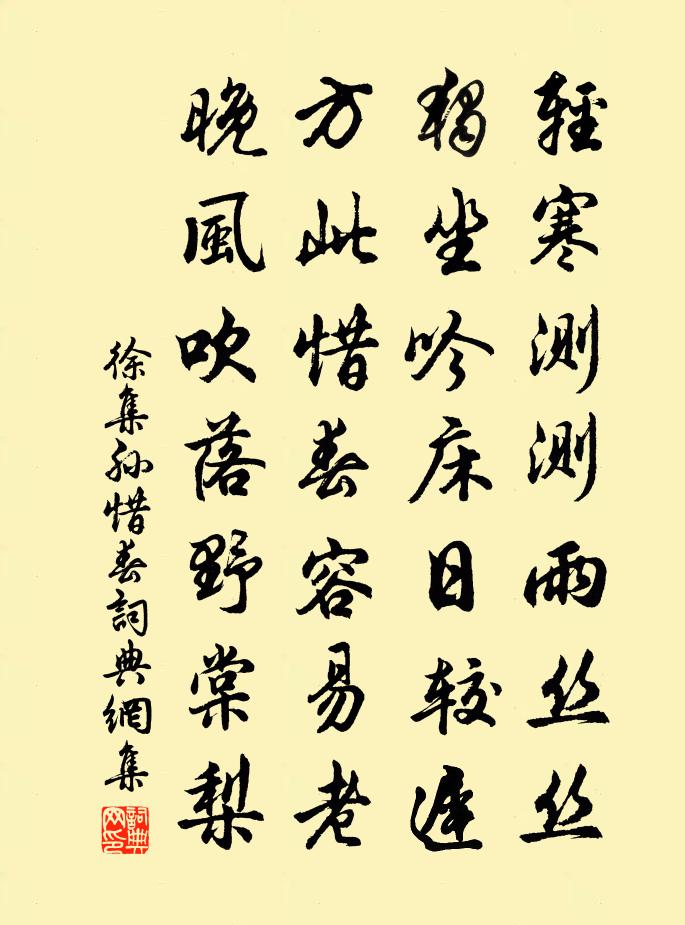 輕寒測測雨丝丝
獨坐吟床日較遲
方此惜春容易老
晚風吹落野棠梨
徐集孙惜春詞典網集
詞典网印